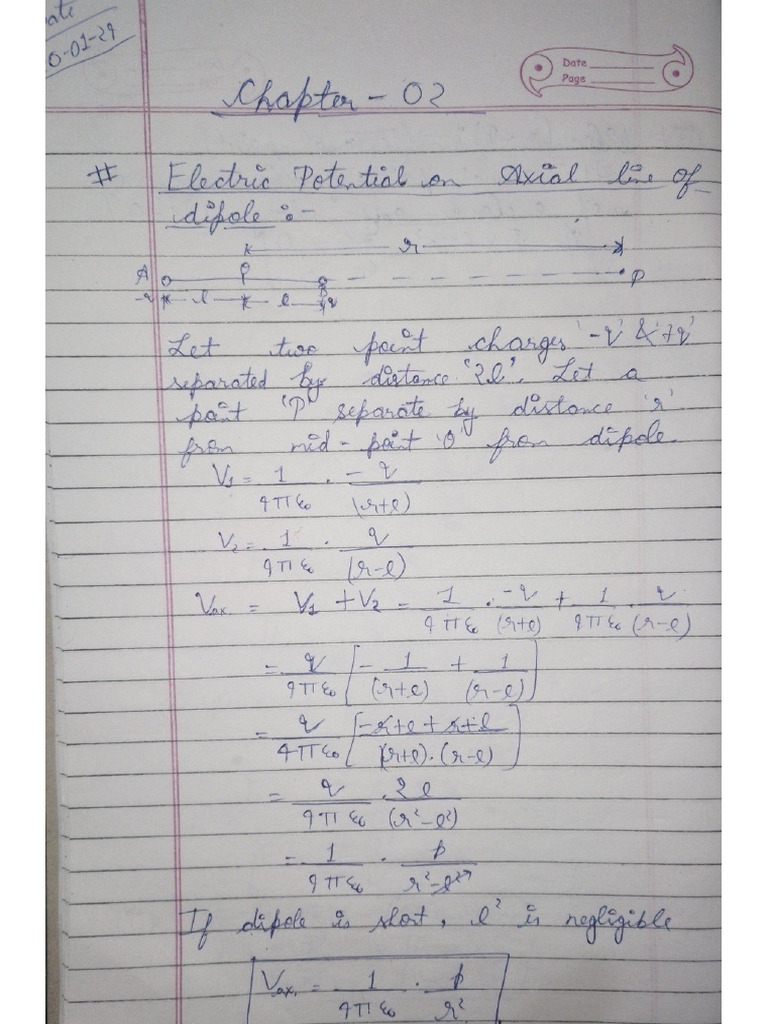 ate
0-01-24
Date
Page
Chapter - 02
# Electric Potential on Axial line of
dipole :-
r
A O P
-q l l q
Let two point charges '-q' & '+q'
separated by distance "2l". Let a
point 'P' separate by distance 'r'
from mid-point 'O' from dipole
V₁ = 1/4πε₀ · -q/(r+l)
V₂ = 1/4πε₀ · q/(r-l)
Vax. = V₁ + V₂ = 1/4πε₀ · -q/(r+l) + 1/4πε₀ · q/(r-l)
= q/4πε₀ [- 1/(r+l) + 1/(r-l)]
= q/4πε₀ [-r+l+r+l/(r+l).(r-l)]
= q/4πε₀ · 2l/(r²-l²)
= 1/4πε₀ · p/r²-l²
If dipole is short, l² is negligible
Vax. = 1/4πε₀ · p/r²